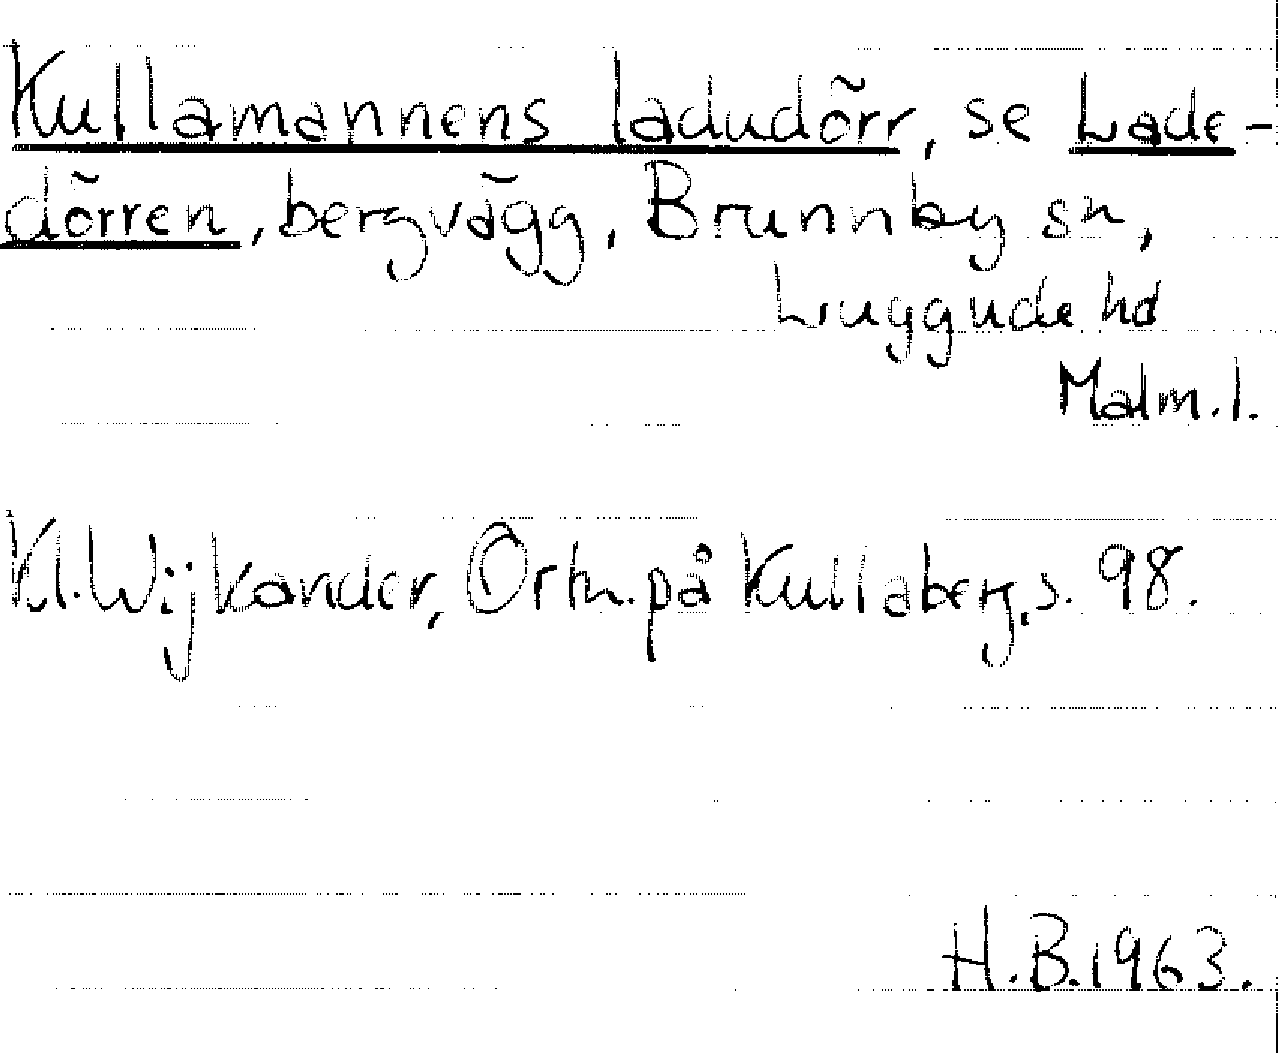 Kullamannens ladudörr, se Lade-
dörren, bergvägg, Brunnby sn,
Luggude hd
Malm.l.
Kl. Wijkander, Ortn. på Kullaberg, s. 98.
H.B. 1963.